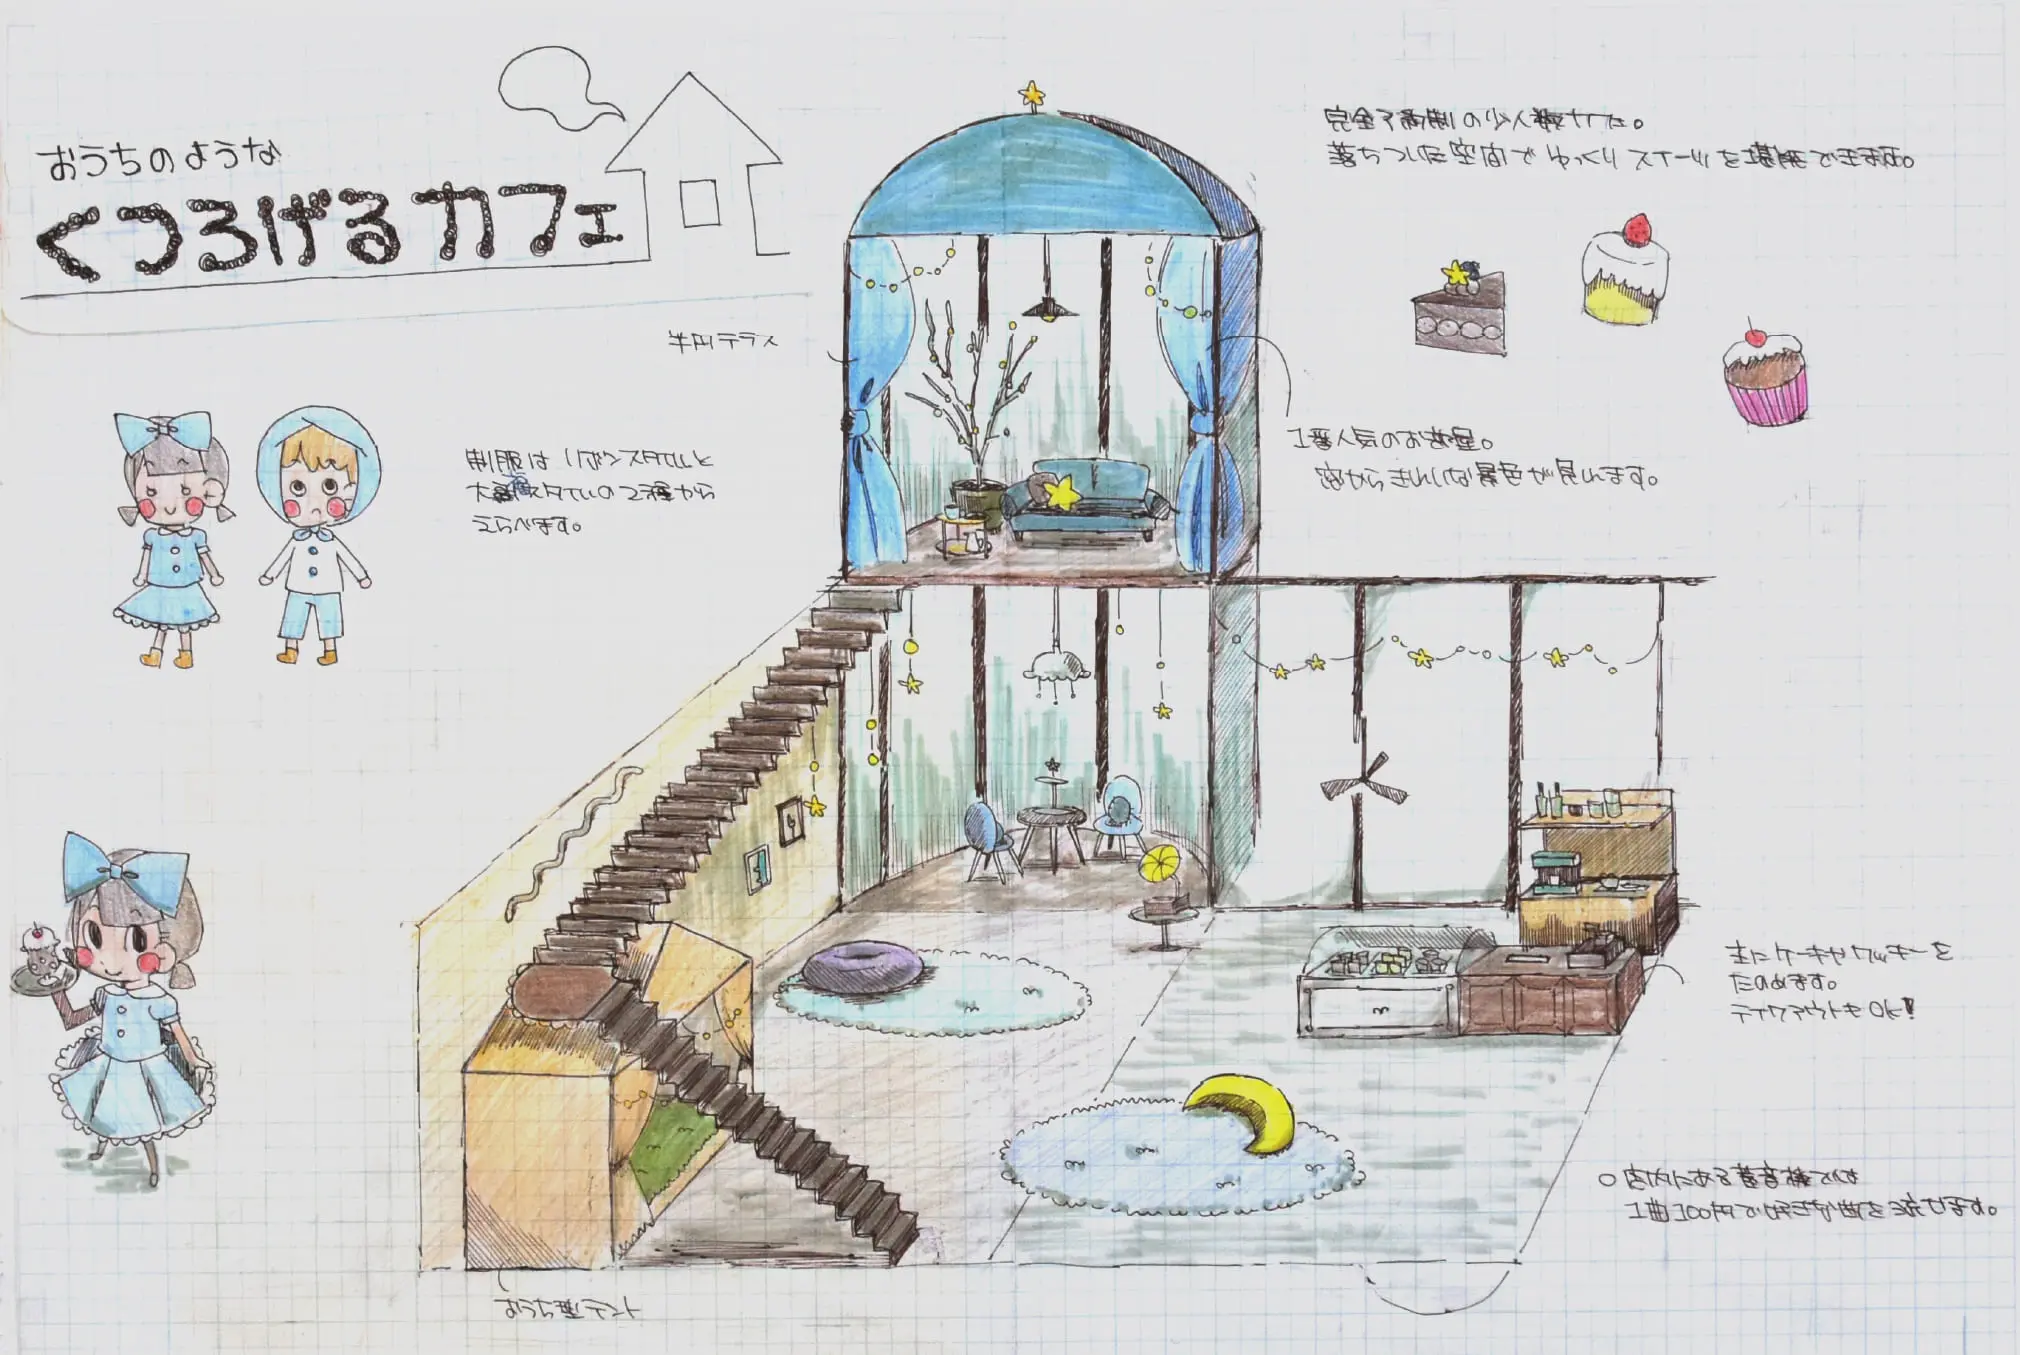 おうちのような
くつろげるカフェ
完全予約制の少人数カフェ。
落ちついた空間でゆっくりスイーツを堪能できます。
半円テラス
1番人気のお部屋。
窓からきれいな景色が見れます。
制服はリボンスタイルと
スタイルの2種から
えらべます。
主にケーキやクッキーを
たのめます。
テイクアウトもOK!
○店内にある蓄音機では
1曲100円で好きな曲を流せます。
おうち型テント